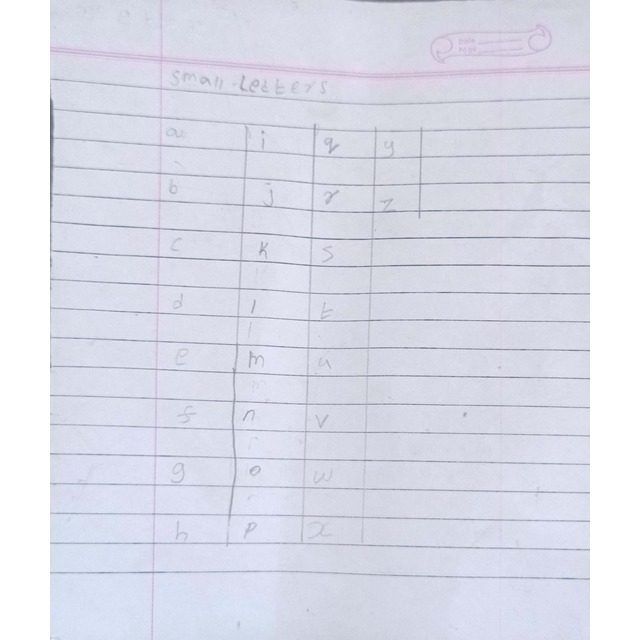 Date
Page
Small Letters
a i q y
b j r z
c k s
d l t
e m u
f n v
g o w
h p x